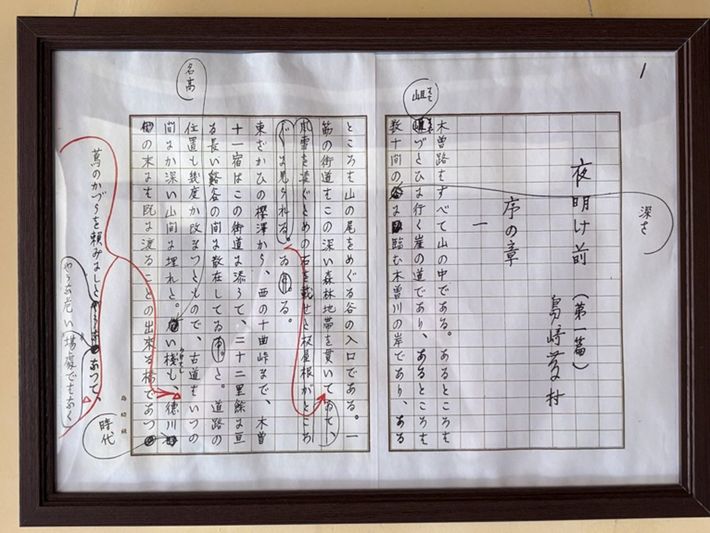 1
夜明け前（第一篇）
島崎藤村
序の章
一
木曽路はすべて山の中である。あるところは
岨づたひに行く崖の道であり、あるところは
数十間の
深さ
に臨む木曽川の岸であり、ある
岨
ところは山の尾をめぐる谷の入口である。一
筋の街道はこの深い森林地帯を貫いて
風雪を凌ぐための石を載せた板屋根がところ
東ざかひの櫻澤から、西の十曲峠まで、木曽
十一宿はこの街道に添うて、二十二里餘に亘
る長い谿谷の間に散在してゐ
た。道路の
位置も幾度か改まつたもので、古道はいつの
間にか深い山間に埋れた。
名高
い棧も、
徳川
時代
の末には既に渡ることの出来る橋であつ
蔦のかづらを頼みにした
あつて、
場處ではなく